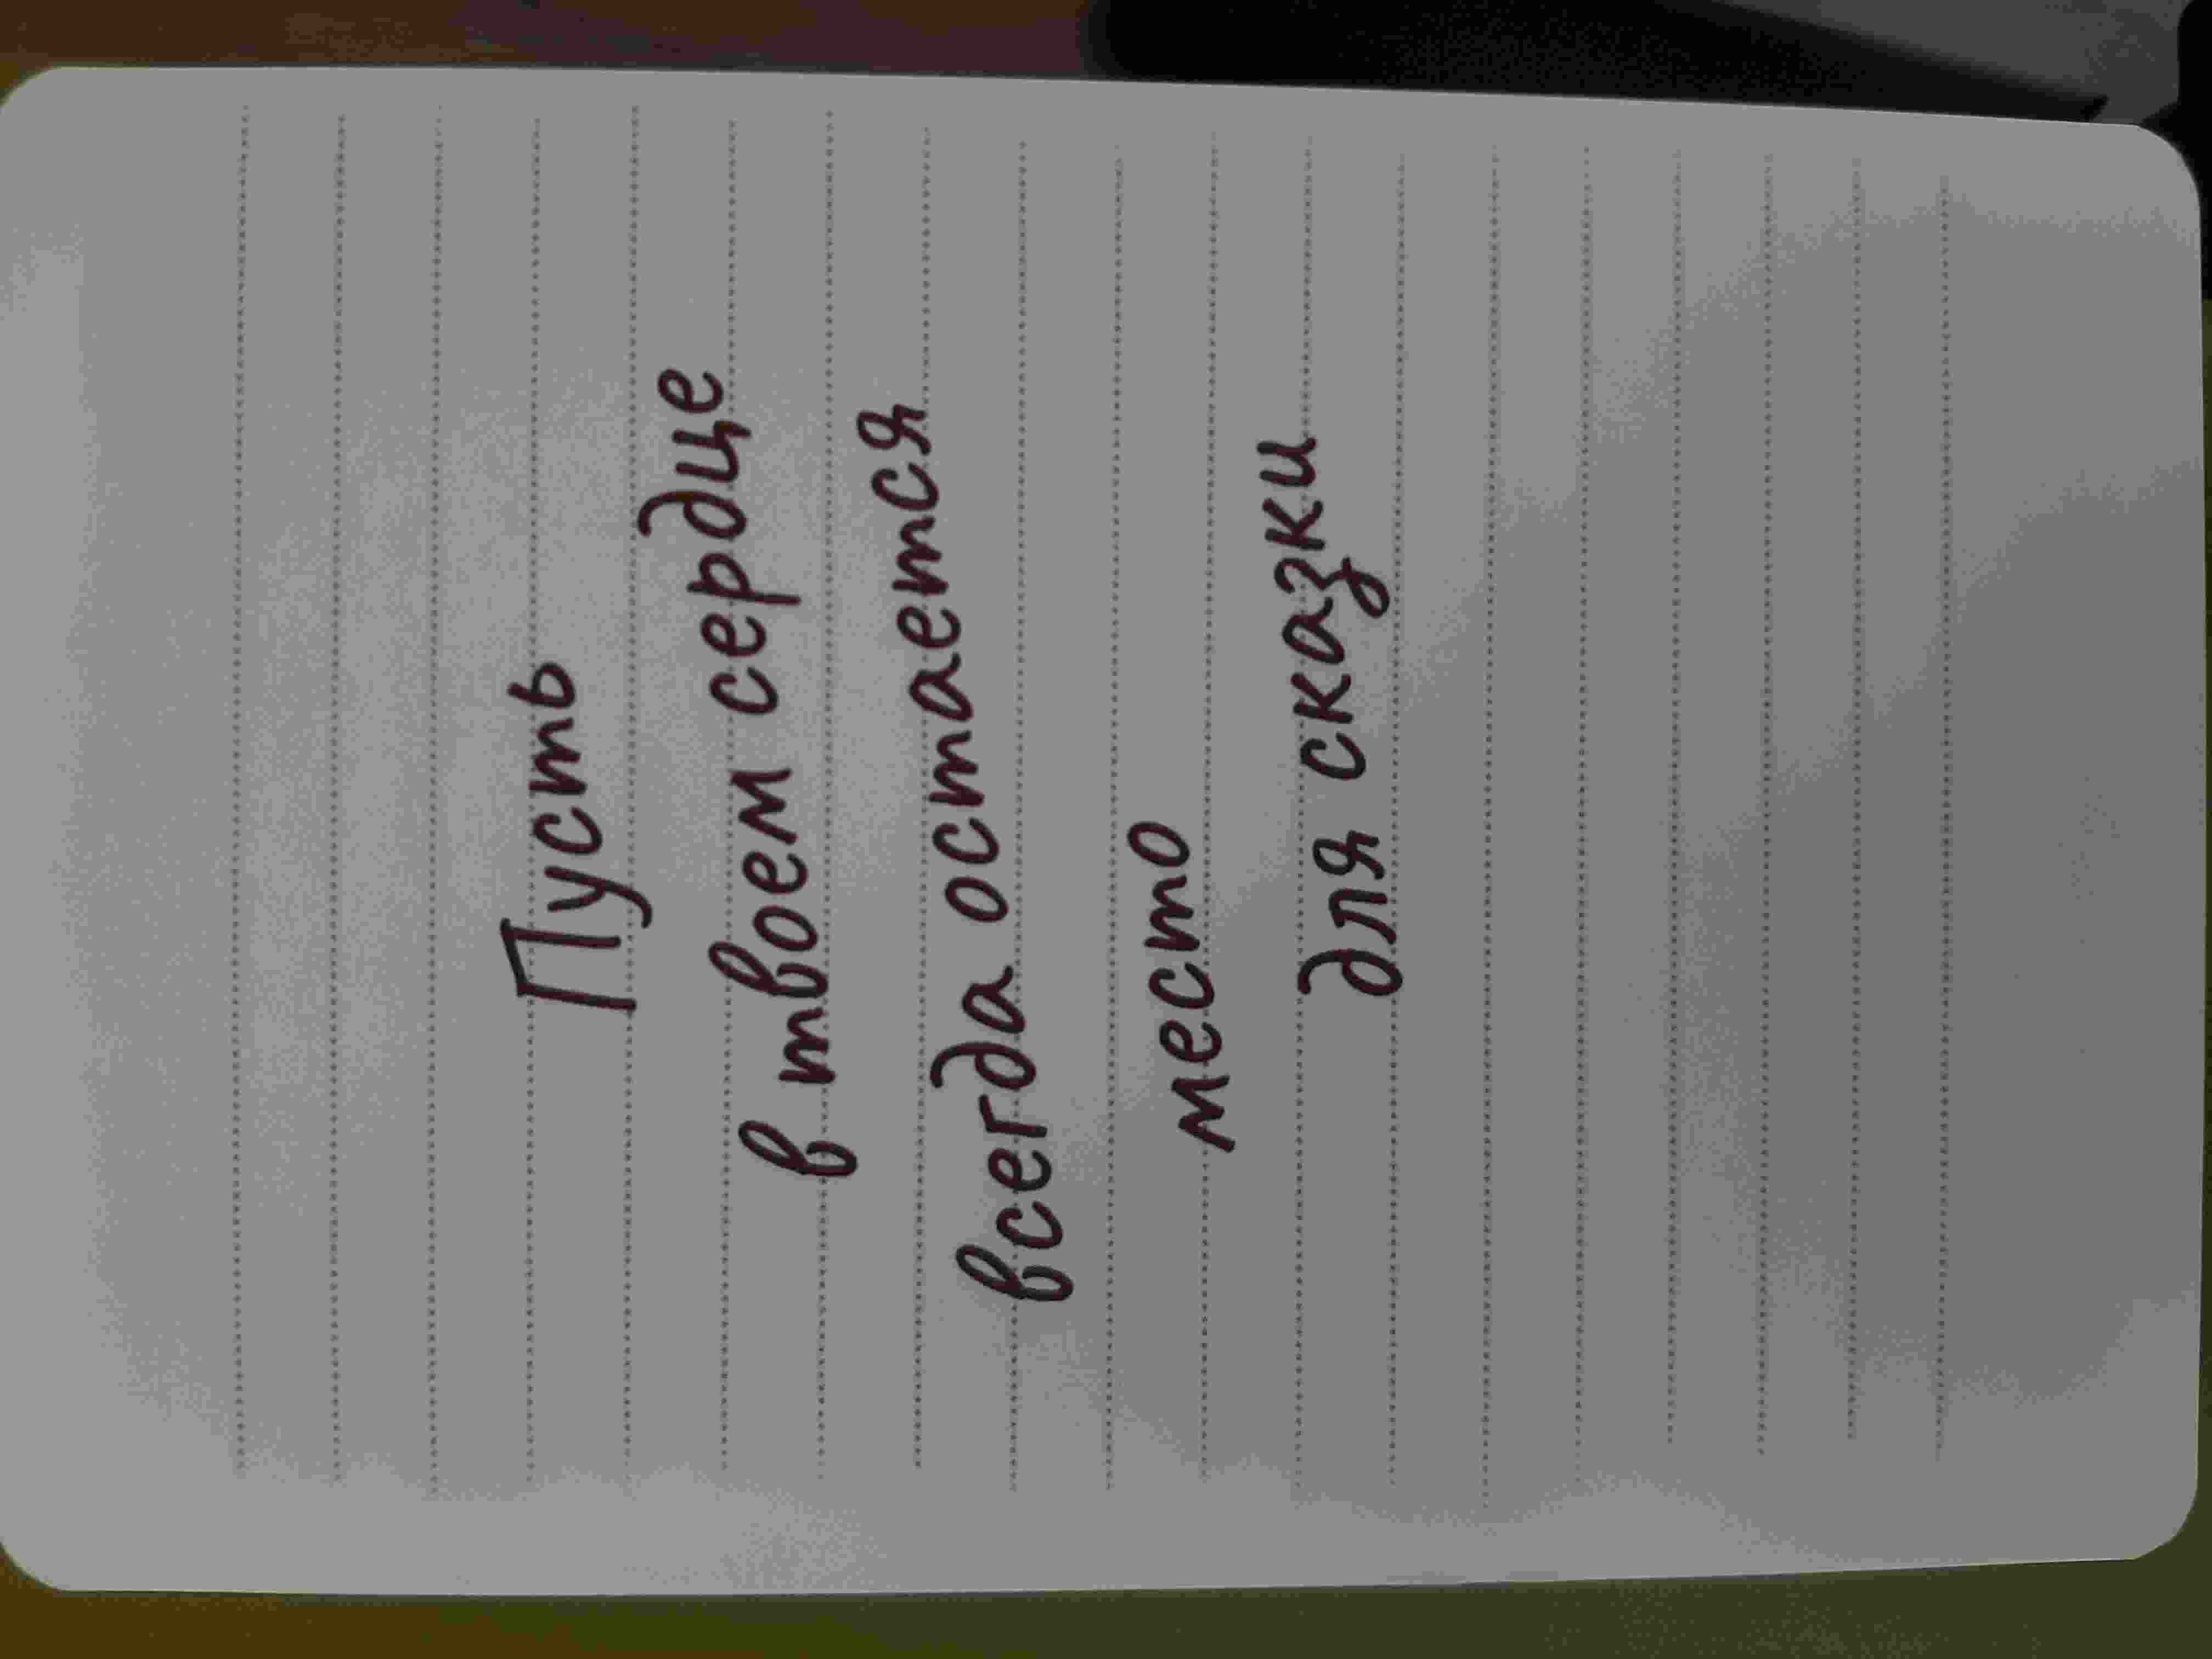 Пусть
в твоем сердце
всегда остается
место
для сказки